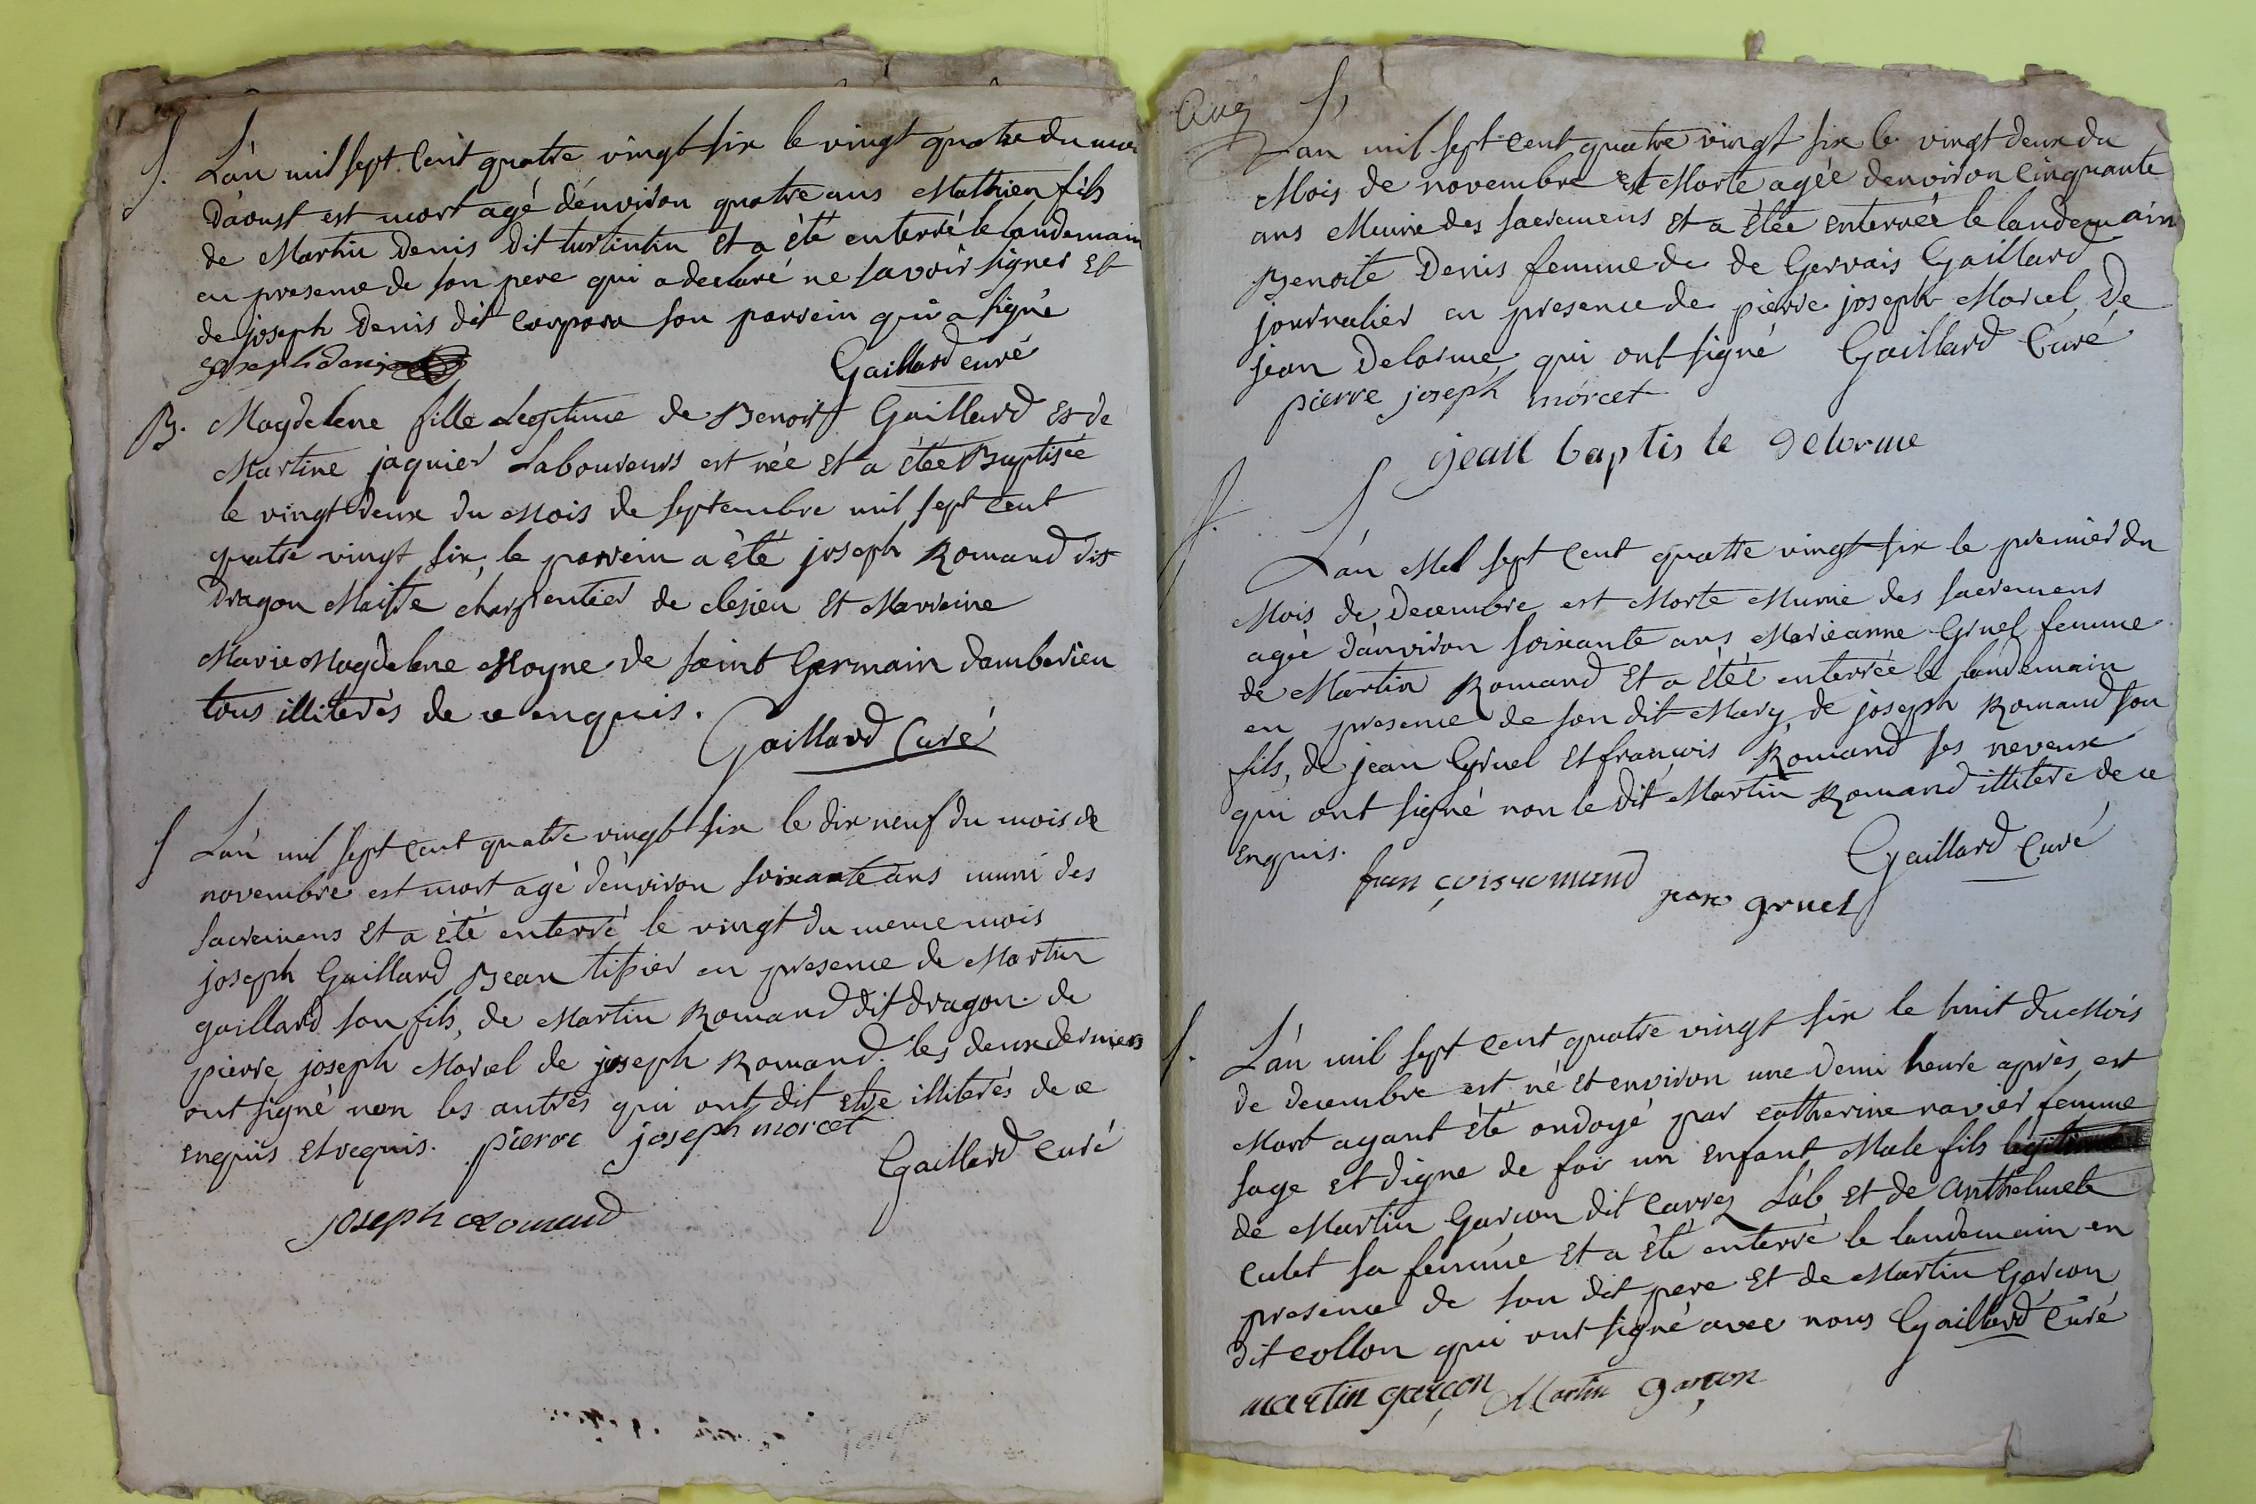 S. L'an mil sept cent quatre vingt six le vingt quatre du moi
d'aoust est mort agé d'énviron quatre ans Mathieu fils
de Martin Denis dit turlintin Et a été enterré le landemain
en presence de son pere qui a declaré ne savoir signer Et
de joseph Denis dit corpora son parrein qui a signé
joseph denis
Gaillard curé
B. Magdelene fille Legitime de Benoit Gaillard Et de
Martine jaquier Laboureurs est née Et a étée Baptisée
le vingt deux du Mois de septembre mil sept cent
quatre vingt six, le parrein a été joseph Romand dit
Dragon Maitre charpentier de clesieu Et Marreine
Marie Magdelene Moyne de saint Germain d'amberieu
tous illiterés de ce enquis.
Gaillard Curé
S L'an mil sept cent quatre vingt six le dix neuf du mois de
novembre est mort agé d'énviron soixante ans muni des
sacremens Et a été enterré le vingt du meme mois
joseph Gaillard Bean tissier en presence de Martin
gaillard son fils, de Martin Romand dit dragon. de
pierre joseph Morcel de joseph Romand. les deux derniers
ont signé non les autres qui ont dit etre illiterés de ce
enquis Et requis. pierre joseph morcel
Gaillard Curé
joseph Romand
S
L'an mil sept cent quatre vingt six le vingt deux du
Mois de novembre est Morte agée denviron Cinquante
ans Munie des sacremens Et a étée enterrée le landemain
Benoite Denis femme de de Gervais Gaillard
journalier en presence de pierre joseph Morcel, De
jean Delorme, qui ont signé Gaillard Curé
pierre joseph morcel
jean baptiste delorme
S. L'an Mil sept cent quatre vingt six le premier du
Mois de Decembre est Morte Munie des sacremens
agée d'anviron soixante ans Marieanne Gruel femme
de Martin Romand Et a étée enterrée le landemain
en presence de son dit Mary, de joseph Romand son
fils, de jean Gruel Et françois Romand ses neveux
qui ont signé non le dit Martin Romand illiteré de ce
Enquis.
Gaillard Curé
françois romand jean gruel
S. L'an mil sept cent quatre vingt six le huit du Mois
de decembre est né Et environ une demi heure après est
Mort ayant été ondoyé par catherine ravier femme
sage Et digne de foi un Enfant Male fils
de Martin Garcon dit Carrez Lab. Et de Anthelmete
Culet sa femme Et a été enterré le landemain en
presence de son dit pere Et de Martin Garcon
dit collon qui ont signé avec nous Gaillard Curé
martin garçon Martin garçon